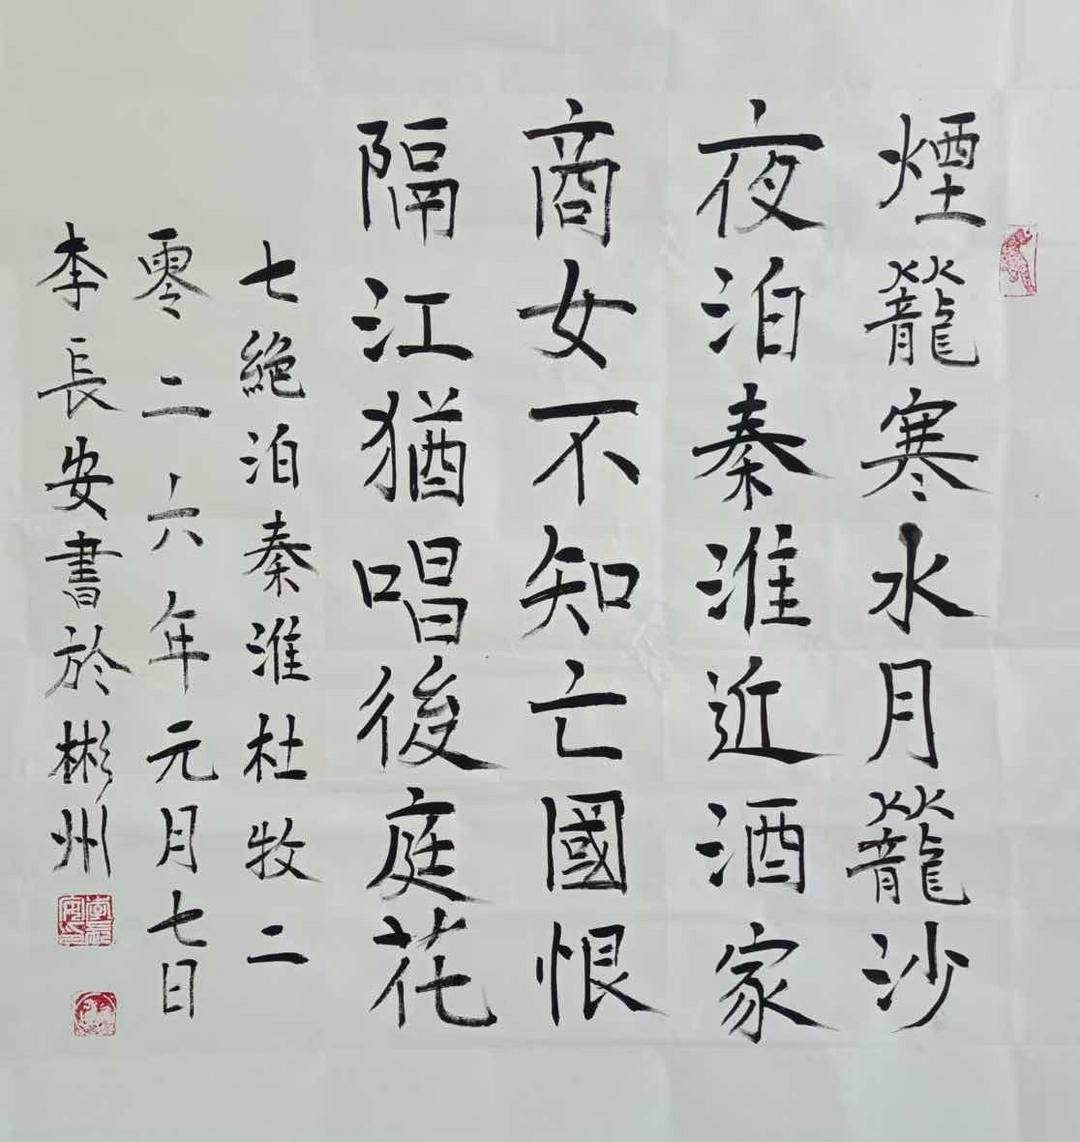 煙籠寒水月籠沙
夜泊秦淮近酒家
商女不知亡國恨
隔江猶唱後庭花
七絕泊秦淮杜牧二
零二六年元月七日
李長安書於彬州